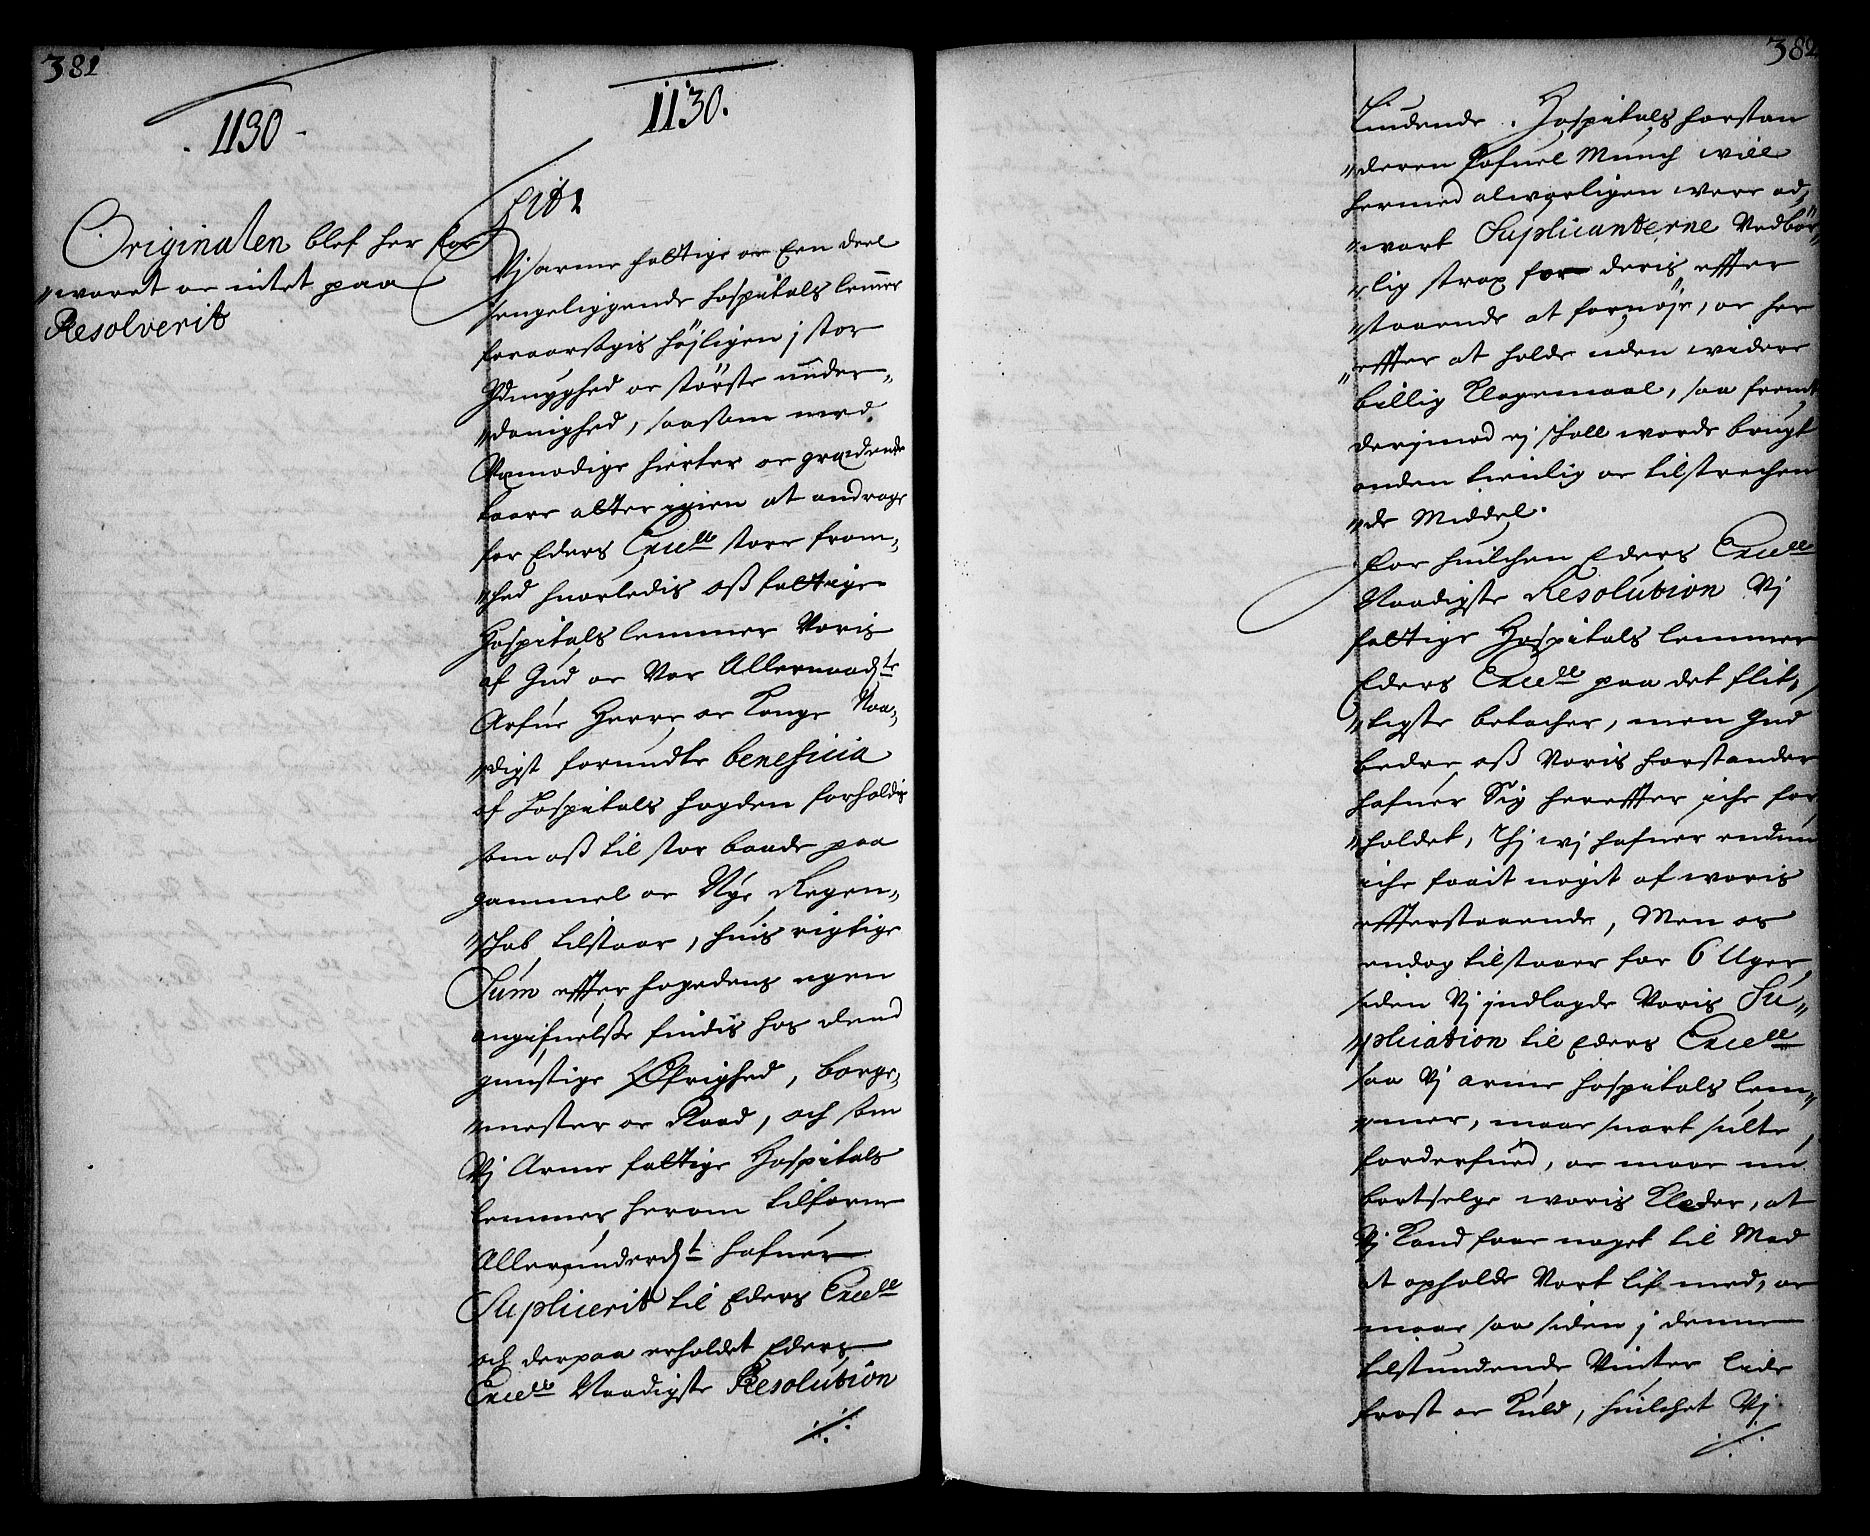 381
1130
Originalen blef her for
„waret oc intet paa
Resolverit
1130.
Vj arme fattige oc Een deel
sengeliggende Hospitals lemmer
foraarsagis høyligen j stor
Ydmyghed oc største under„
„danighed, saasom med
Vemodige hierter oc grædende
taare atter igien at andrage
for Eders Excelle store from„
„hed huorledis oß fattige
Hospitals lemmer Voris
af Gud oc Vor Allernaadste
Arfue Herre oc Konge Naa„
„digst forundte beneficia
af Hospitals fogden forholdis
som oß til stor baade paa
gammel oc Nye Regen„
„schab tilstaar, huis rigtige
Sum effter fogedens egen
angifuelse findis hos dend
gunstige Øfrighed, borge„
„mester oc Raad, och som
Vj Arme fattige Hospitals
lemmer herom tilforne
Allerunderdt hafuer
Suplicerit til Eders Excelle
och derpaa erholdet Eders
Excelle Naadigste Resolution
382
Liudende. Hospitals forstan
„deren Pofuel Munch wille
hermed alworligen were ad„
„wart Suplicanterne Vedbør„
„lig strax for deris effter
„staaende at fornøje, oc her
„effter at holde uden widere
billig Klagemaal, saa fremt
derjmod ej skall worde brugt
anden tienlig oc tilstrechen
„de Middel.
For huilchen Eders Excelle
Naadigste Resolution Vj
fattige Hospitals lemmer
Eders Excelle paa det flit„
„tigste betacher, men Gud
bedre oß Voris forstander
hafuer Sig hereffter iche for
„holdet, Thj wj hafuer endnu
iche faait noget af woris
effterstaaende, Men os
endog tilstaaer for 6 Uger
siden Vj indlagde Voris Su„
„plication til Eders Excelle
saa Vj arme Hospitals lem„
„mer, maae snart sulte
forderfued, oc maae nu
bortselge woris Kleder, at
Vj Kand faae noget til Mad
at opholde Vort lif med, oc
maae saa siden j denne
tilstundende Vinter lide
frost oc Kuld, huilchet Vj